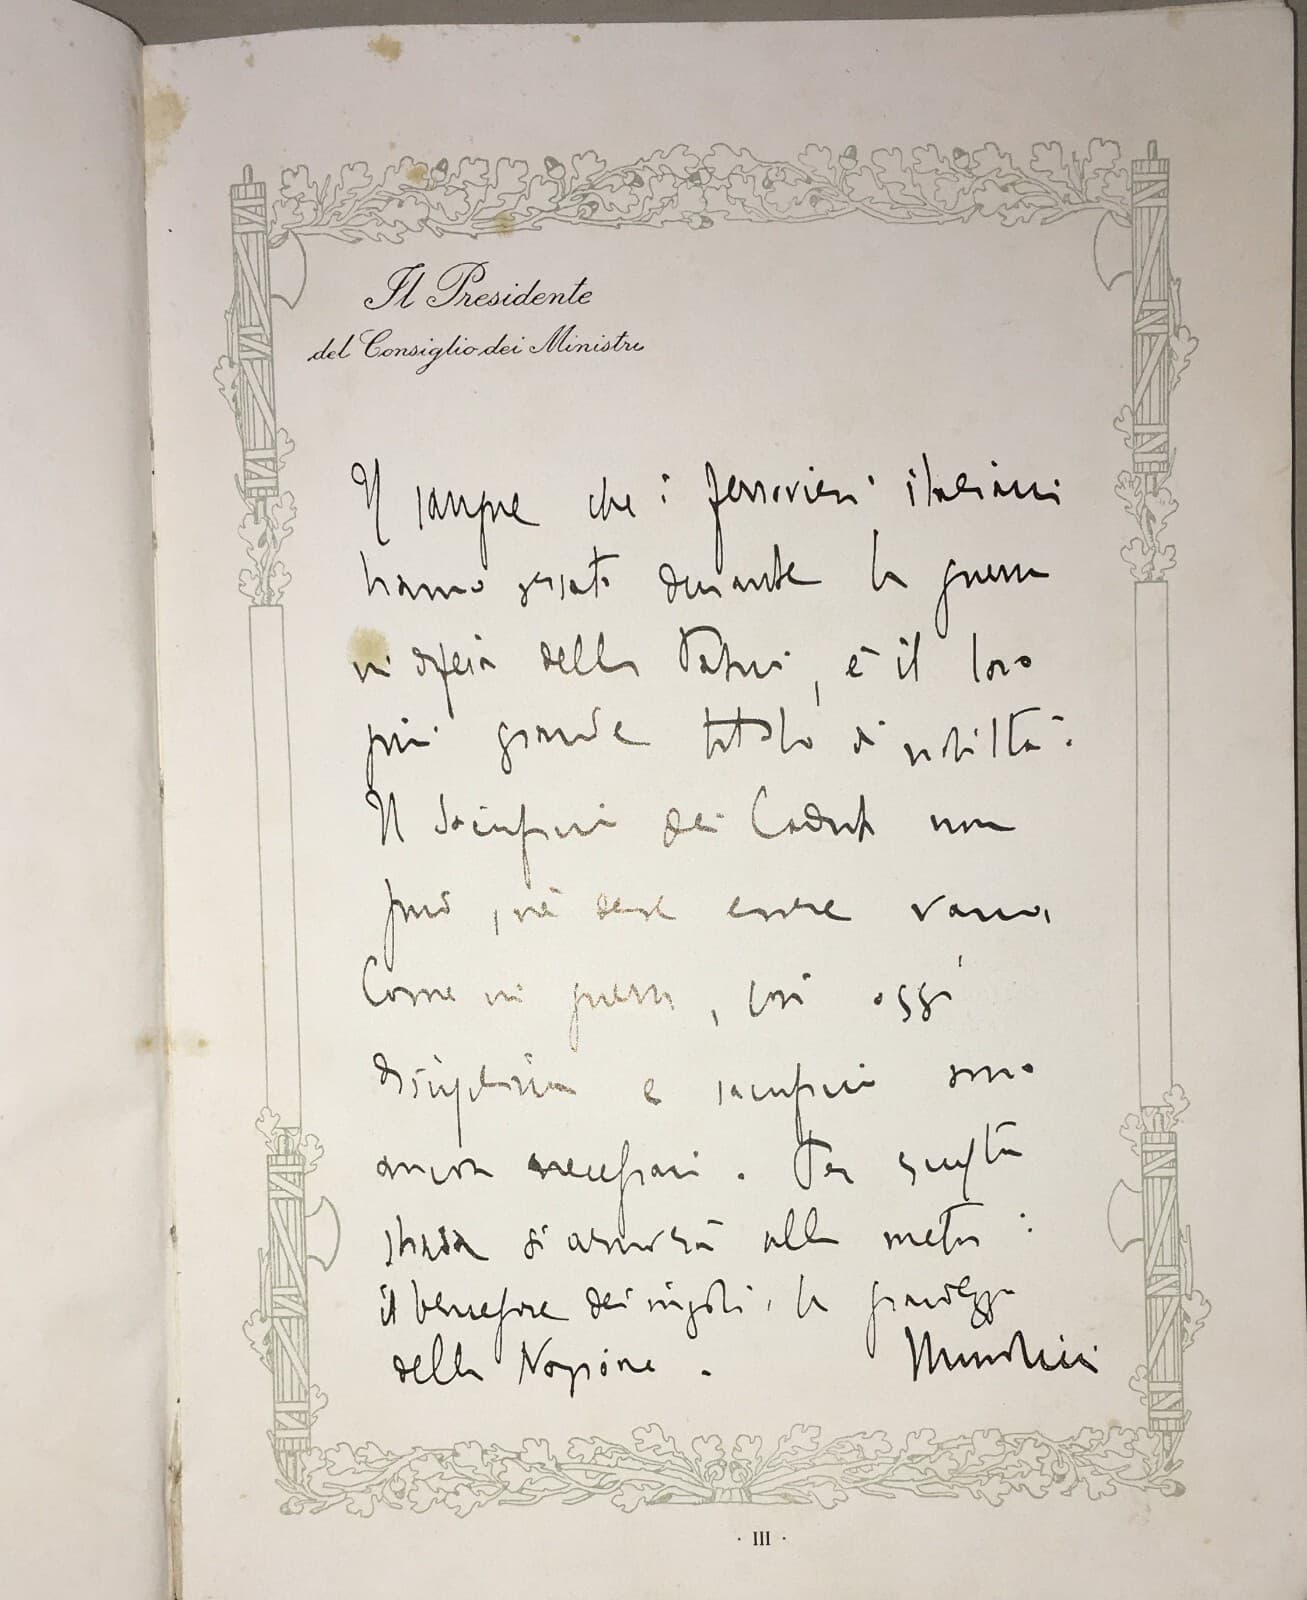 Il Presidente
del Consiglio dei Ministri
Il sangue che i ferrovieri italiani
hanno versato durante la guerra
in difesa della Patria, è il loro
più grande titolo di nobiltà.
Il sacrificio dei Caduti non
può, nè deve essere vano.
Come in guerra, così oggi
disciplina e sacrificio sono
ancora necessari. Per questa
strada si arriverà alla meta:
il benessere dei singoli, la grandezza
della Nazione. Mussolini
· III ·